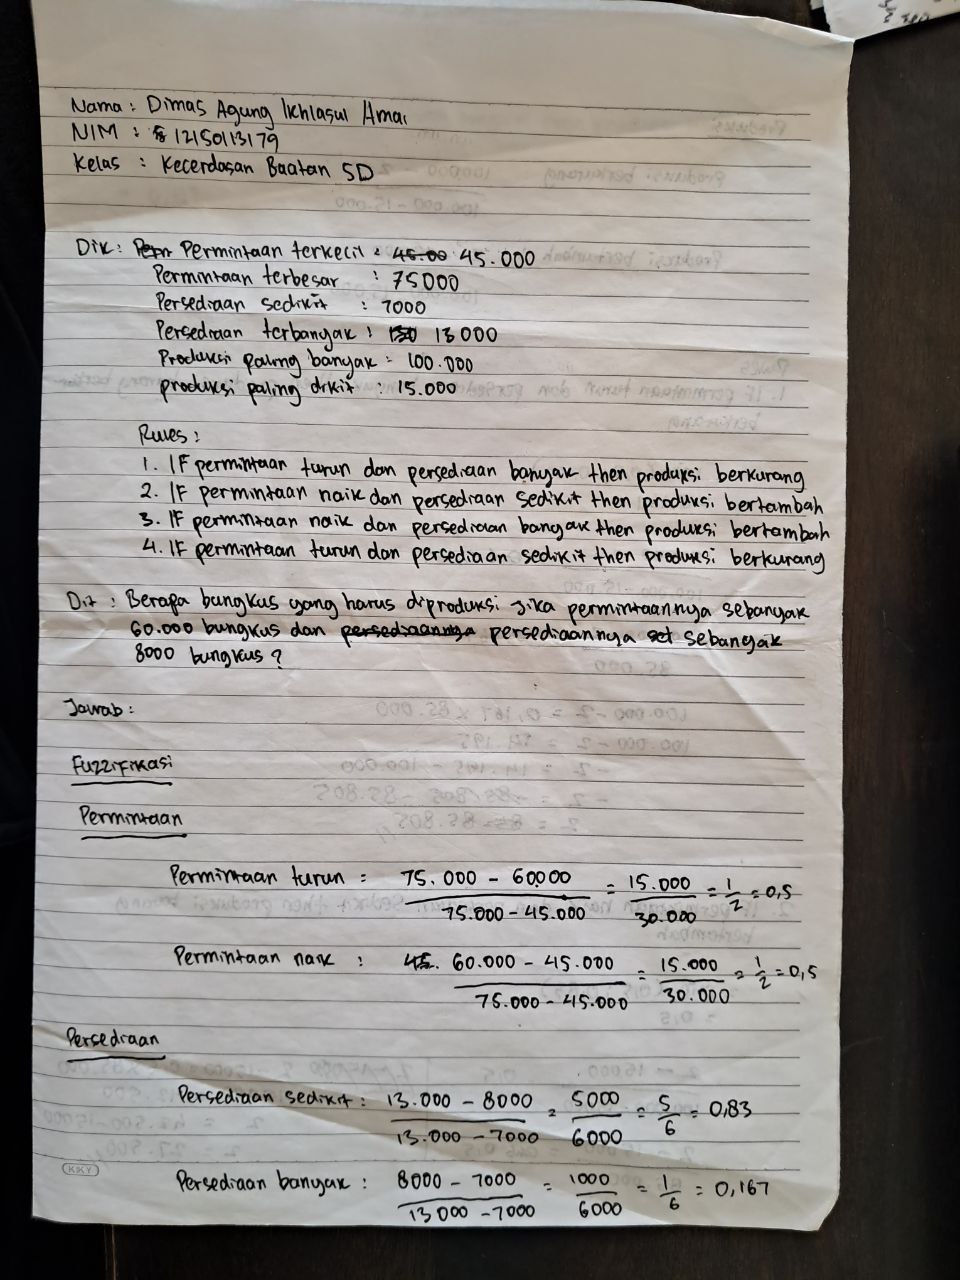 Nama : Dimas Agung Ikhlasul Amal
NIM : 12150113179
Kelas : Kecerdasan Buatan 5D
Dik : Permintaan terkecil : 45.00 45.000
Permintaan terbesar : 75000
Persediaan sedikit : 7000
Persediaan terbanyak : 130 13000
Produksi paling banyak : 100.000
produksi paling dikit : 15.000
Rules :
1. IF permintaan turun dan persediaan banyak then produksi berkurang
2. IF permintaan naik dan persediaan sedikit then produksi bertambah
3. IF permintaan naik dan persediaan banyak then produksi bertambah
4. IF permintaan turun dan persediaan sedikit then produksi berkurang
Dit : Berapa bungkus yang harus diproduksi jika permintaannya sebanyak
60.000 bungkus dan persediaannya persediaannya set sebanyak
8000 bungkus ?
Jawab :
Fuzzifikasi
Permintaan
Permintaan turun = 75.000 - 60.000 / 75.000 - 45.000 = 15.000 / 30.000 = 1/2 = 0,5
Permintaan naik : 45. 60.000 - 45.000 / 75.000 - 45.000 = 15.000 / 30.000 = 1/2 = 0,5
Persediaan
Persediaan sedikit : 13.000 - 8000 / 13.000 - 7000 = 5000 / 6000 = 5/6 = 0,83
Persediaan banyak : 8000 - 7000 / 13000 - 7000 = 1000 / 6000 = 1/6 = 0,167
KKY